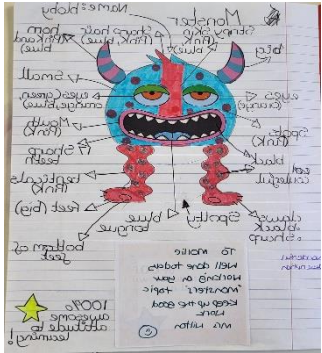 Monster
Name: bloby
big
Stripy skin
(Pink
blue)
Sharp hair
(Pink, blue)
horn
(Pink and
blue)
Small
eyes
(orange)
eyes (green
orange, blue)
Spots
(Pink)
Mouth
(Pink)
Sharp
teeth
black
colourful
tenticals
(Pink)
claws
black
Sharp
Spotty
blue
tongue
feet (big)
bottom of
feet
To Mollie
Well done today
working on your
"monsters" topic
keep up the good
work
Mrs Hilton
100%
awesome
attitude to
learning!